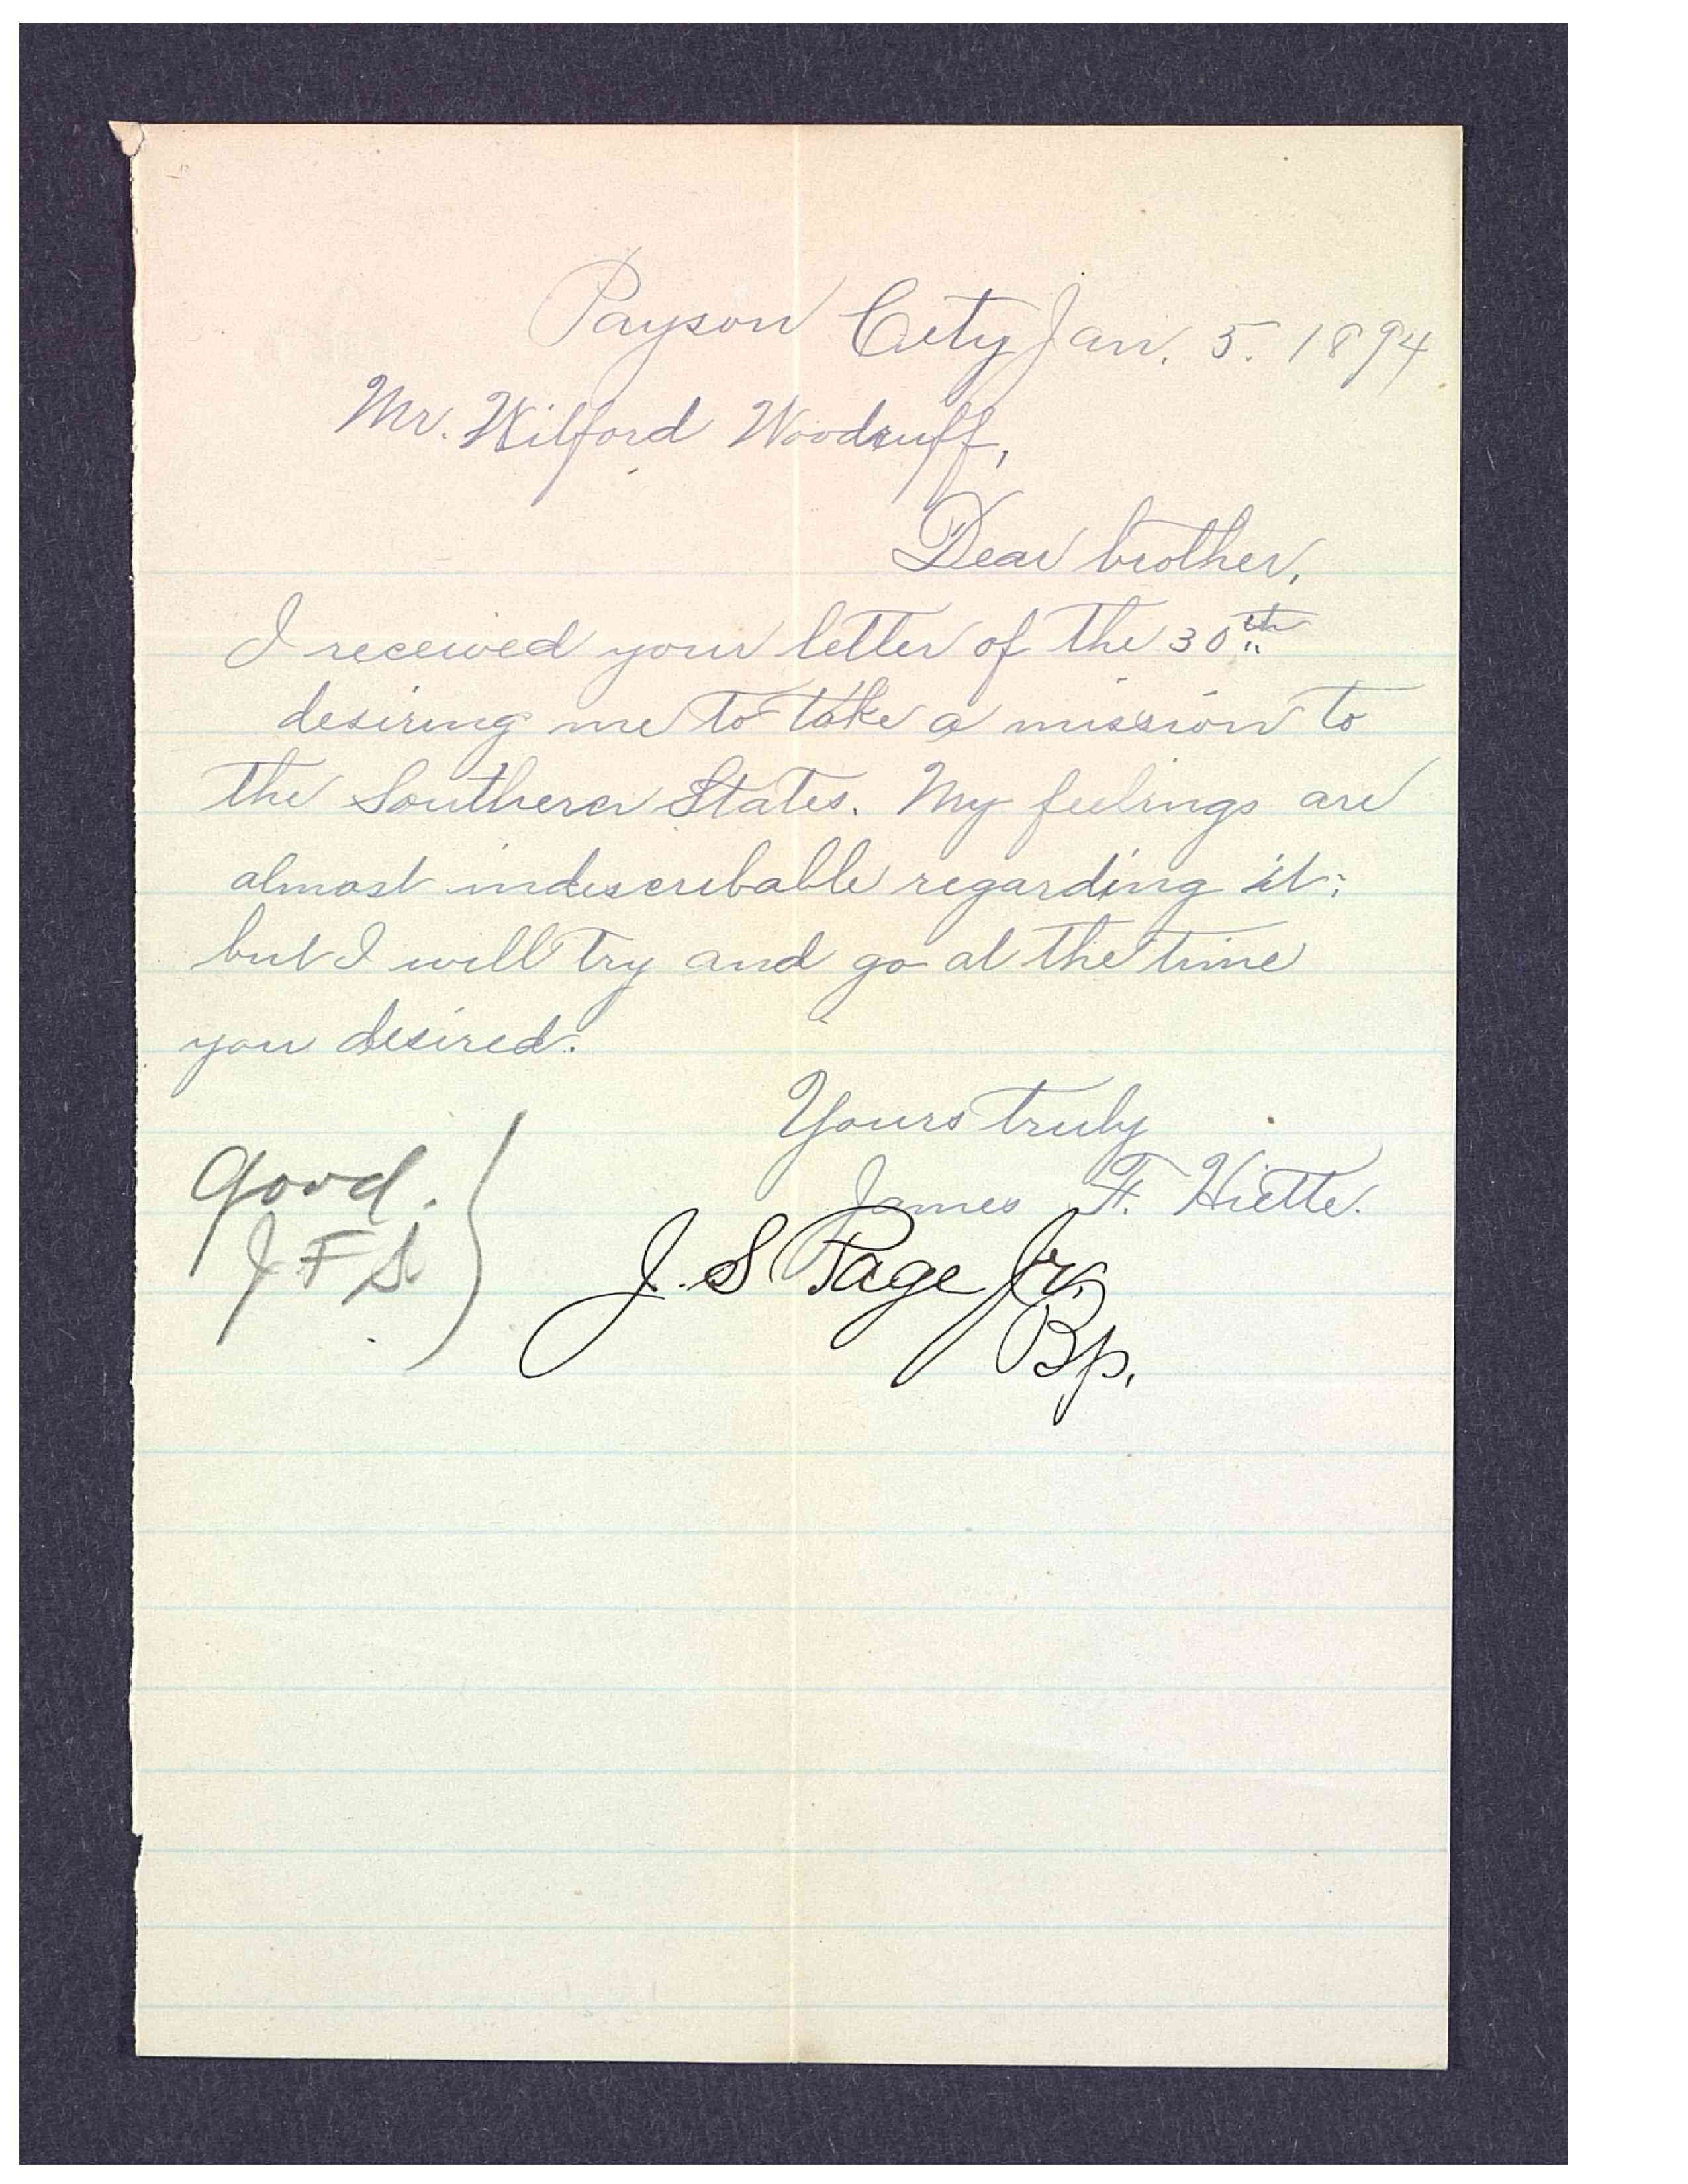 Payson City Jan. 5. 1894
Mr. Wilford Woodruff,
Dear brother,
I received your letter of the 30th
desiring me to take a mission to
the Southern States. My feelings are
almost indescribable regarding it;
but I will try and go at the time
you desired.
Yours truly
James F. Hiette.
Good.
J F S
J. S Page Jr.
Bp.